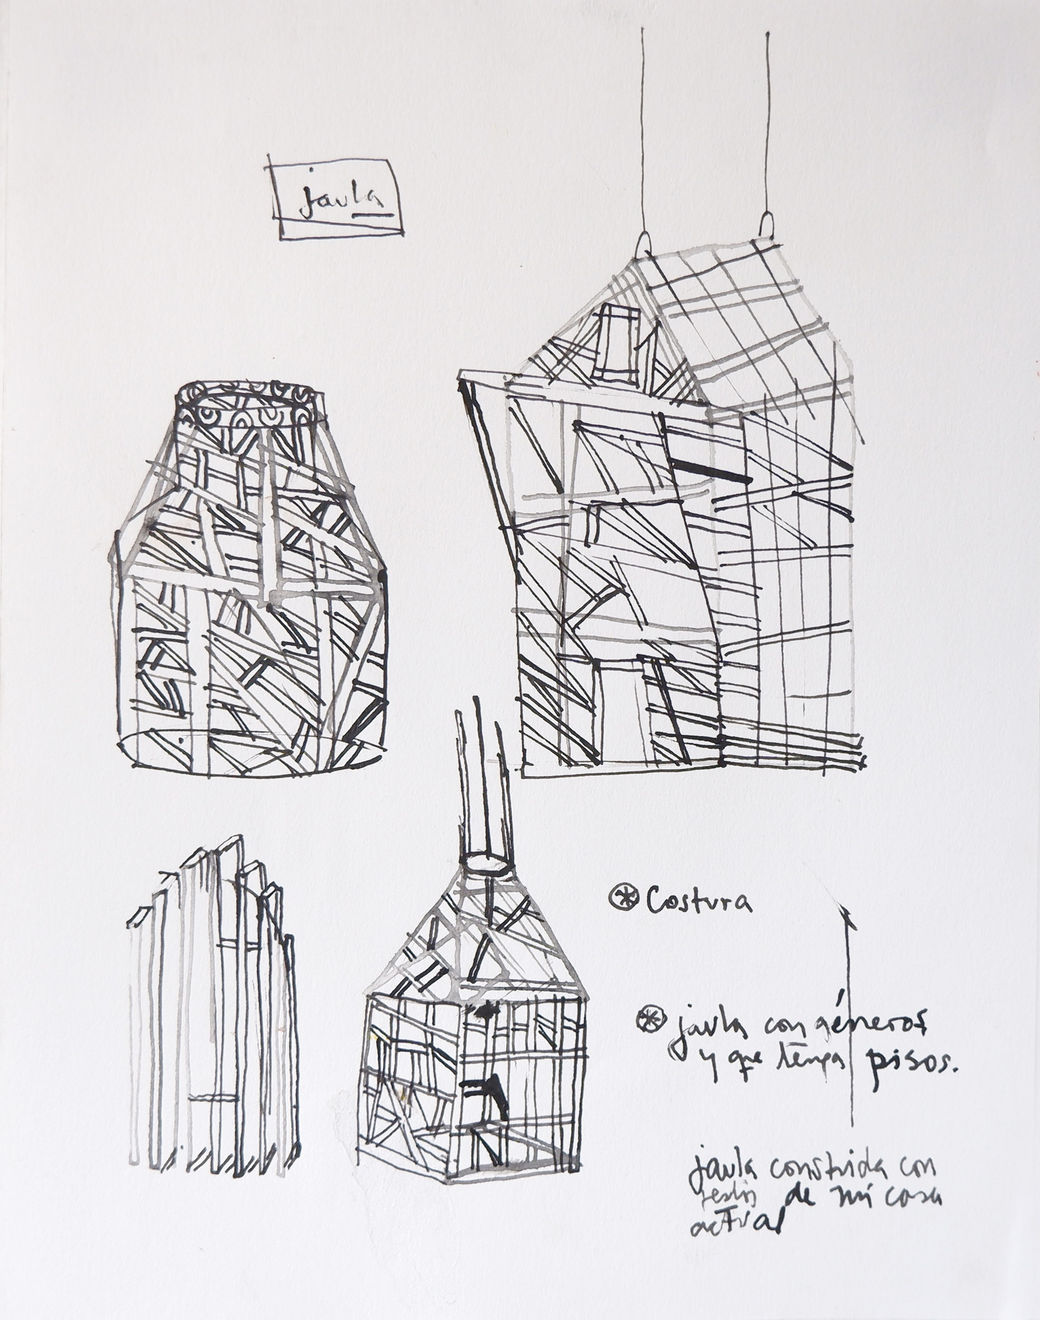 jaula
Costura
jaula con géneros
y que tenga pisos.
jaula construida con
restos de mi casa
actual